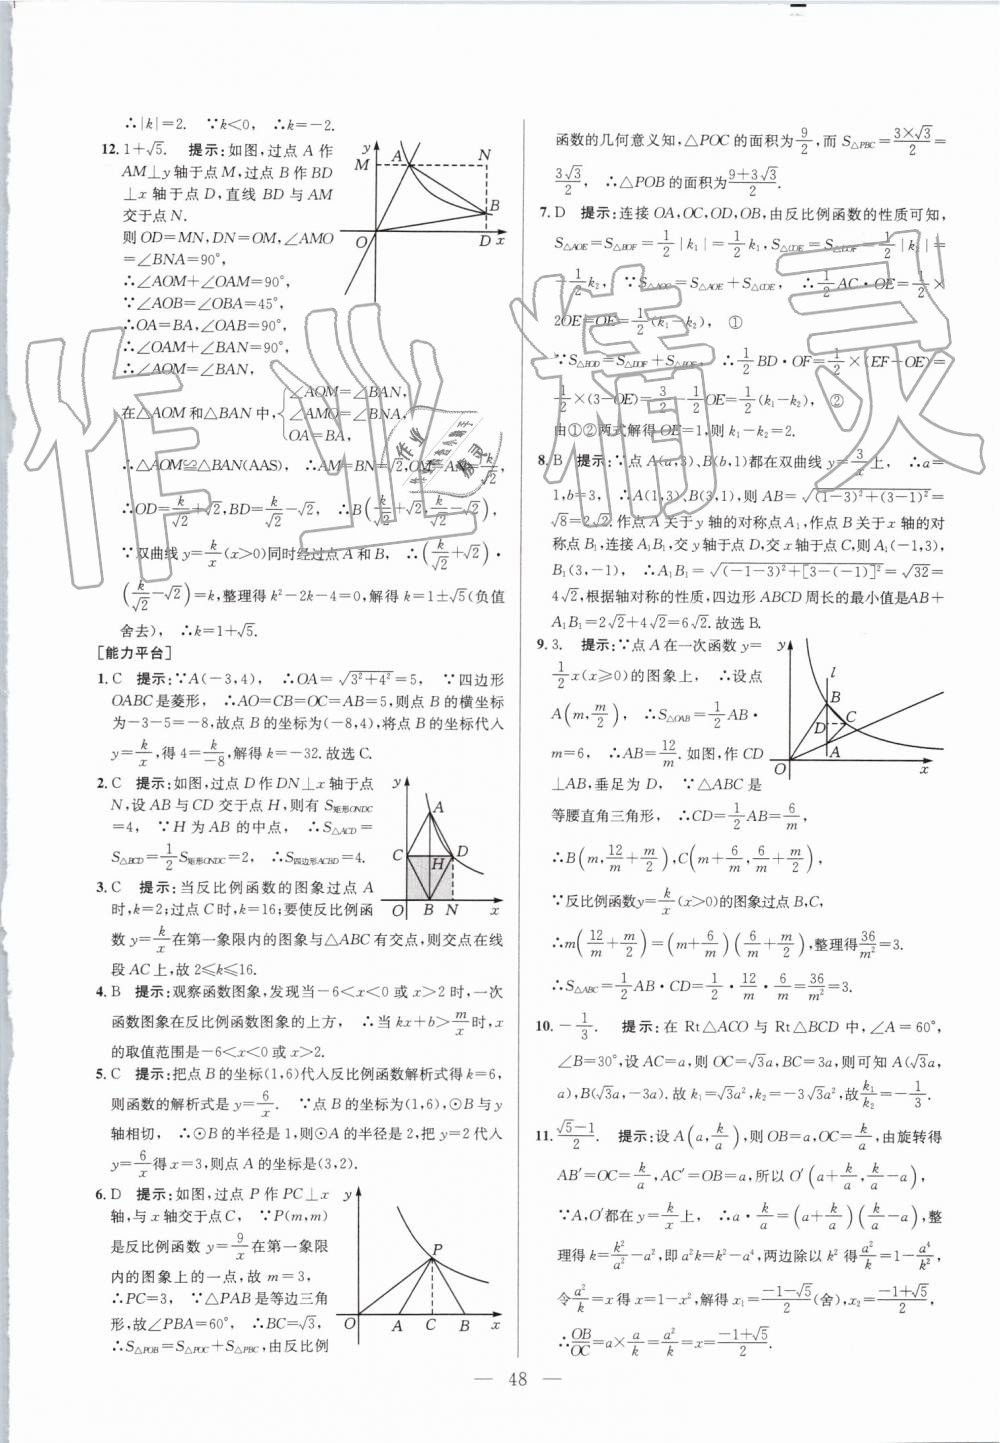 ∴|k|=2. ∵k<0, ∴k=-2.
12. 1+√5. 提示:如图,过点 A 作
AM⊥y 轴于点 M,过点 B 作 BD
⊥x 轴于点 D,直线 BD 与 AM
交于点 N.
则 OD=MN,DN=OM,∠AMO
=∠BNA=90°,
∴∠AOM+∠OAM=90°.
∵∠AOB=∠OBA=45°,
∴OA=BA,∠OAB=90°,
∴∠OAM+∠BAN=90°,
∴∠AOM=∠BAN,
在△AOM 和△BAN 中, {∠AOM=∠BAN, ∠AMO=∠BNA, OA=BA,
∴△AOM≌△BAN(AAS), ∴AM=BN=√2,OM=AN=k/√2
∴OD=k/√2+√2,BD=k/√2-√2, ∴B(k/√2+√2, k/√2-√2),
∵双曲线 y=k/x(x>0)同时经过点 A 和 B, ∴(k/√2+√2)·
(k/√2-√2)=k,整理得 k²-2k-4=0,解得 k=1±√5(负值
舍去), ∴k=1+√5.
[能力平台]
1. C 提示:∵A(-3,4), ∴OA=√(3²+4²)=5. ∵四边形
OABC 是菱形, ∴AO=CB=OC=AB=5,则点 B 的横坐标
为-3-5=-8,故点 B 的坐标为(-8,4),将点 B 的坐标代入
y=k/x,得 4=k/-8,解得 k=-32.故选 C.
2. C 提示:如图,过点 D 作 DN⊥x 轴于点
N,设 AB 与 CD 交于点 H,则有 S矩形ONDC
=4, ∵H 为 AB 的中点, ∴S△ACD=
S△BCD=1/2 S矩形ONDC=2, ∴S四边形ACBD=4.
3. C 提示:当反比例函数的图象过点 A
时,k=2;过点 C 时,k=16;要使反比例函
数 y=k/x在第一象限内的图象与△ABC 有交点,则交点在线
段 AC 上,故 2≤k≤16.
4. B 提示:观察函数图象,发现当-6<x<0 或 x>2 时,一次
函数图象在反比例函数图象的上方, ∴当 kx+b>m/x时,x
的取值范围是-6<x<0 或 x>2.
5. C 提示:把点 B 的坐标(1,6)代入反比例函数解析式得 k=6,
则函数的解析式是 y=6/x. ∵点 B 的坐标为(1,6),⊙B 与 y
轴相切, ∴⊙B 的半径是 1,则⊙A 的半径是 2,把 y=2 代入
y=6/x得 x=3,则点 A 的坐标是(3,2).
6. D 提示:如图,过点 P 作 PC⊥x
轴,与 x 轴交于点 C, ∵P(m,m)
是反比例函数 y=9/x在第一象限
内的图象上的一点,故 m=3,
∴PC=3, ∵△PAB 是等边三角
形,故∠PBA=60°, ∴BC=√3,
∴S△POB=S△POC+S△PBC,由反比例
y M A N B O D x
y A C H D O B N x
y P O A C B x
函数的几何意义知,△POC 的面积为9/2,而 S△PBC=3×√3/2=
3√3/2, ∴△POB 的面积为(9+3√3)/2.
7. D 提示:连接 OA,OC,OD,OB,由反比例函数的性质可知,
S△AOE=S△BOF=1/2|k₁|=1/2k₁,S△COE=S△DOF=1/2|k₂|=
-1/2k₂, ∵S△AOC=S△AOE+S△COE, ∴1/2AC·OE=1/2×
2OE=OE=1/2(k₁-k₂), ①
∵S△BOD=S△DOF+S△BOF, ∴1/2BD·OF=1/2×(EF-OE)=
1/2×(3-OE)=3/2-1/2OE=1/2(k₁-k₂), ②
由①②两式解得 OE=1,则 k₁-k₂=2.
8. B 提示:∵点 A(a,3)、B(b,1)都在双曲线 y=3/x上, ∴a=
1,b=3, ∴A(1,3),B(3,1),则 AB=√((1-3)²+(3-1)²)=
√8=2√2.作点 A 关于 y 轴的对称点 A₁,作点 B 关于 x 轴的对
称点 B₁,连接 A₁B₁,交 y 轴于点 D,交 x 轴于点 C,则 A₁(-1,3),
B₁(3,-1), ∴A₁B₁=√((-1-3)²+[3-(-1)]²)=√32=
4√2,根据轴对称的性质,四边形 ABCD 周长的最小值是AB+
A₁B₁=2√2+4√2=6√2.故选 B.
9. 3. 提示:∵点 A 在一次函数 y=
1/2x(x≥0)的图象上, ∴设点
A(m, m/2), ∴S△OAB=1/2AB·
m=6, ∴AB=12/m. 如图,作 CD
⊥AB,垂足为 D, ∵△ABC 是
等腰直角三角形, ∴CD=1/2AB=6/m,
∴B(m, 12/m+m/2),C(m+6/m, 6/m+m/2).
∵反比例函数y=k/x(x>0)的图象过点 B,C,
∴m(12/m+m/2)=(m+6/m)(6/m+m/2),整理得36/m²=3.
∴S△ABC=1/2AB·CD=1/2·12/m·6/m=36/m²=3.
y l B D C A O x
10. -1/3. 提示:在 Rt△ACO 与 Rt△BCD 中,∠A=60°,
∠B=30°,设 AC=a,则 OC=√3a,BC=3a,则可知 A(√3a,
a),B(√3a,-3a).故 k₁=√3a²,k₂=-3√3a²,故k₁/k₂=-1/3.
11. (√5-1)/2. 提示:设 A(a, k/a),则 OB=a,OC=k/a,由旋转得
AB′=OC=k/a,AC′=OB=a,所以 O′(a+k/a, k/a-a),
∵A,O′都在 y=k/x上, ∴a·k/a=(a+k/a)(k/a-a),整
理得 k=k²/a²-a²,即 a²k=k²-a⁴,两边除以 k² 得a²/k=1-a⁴/k²,
令a²/k=x 得 x=1-x²,解得 x₁=(-1-√5)/2(舍),x₂=(-1+√5)/2,
∴OB/OC=a×a/k=a²/k=x=(-1+√5)/2.
— 48 —
作业精灵